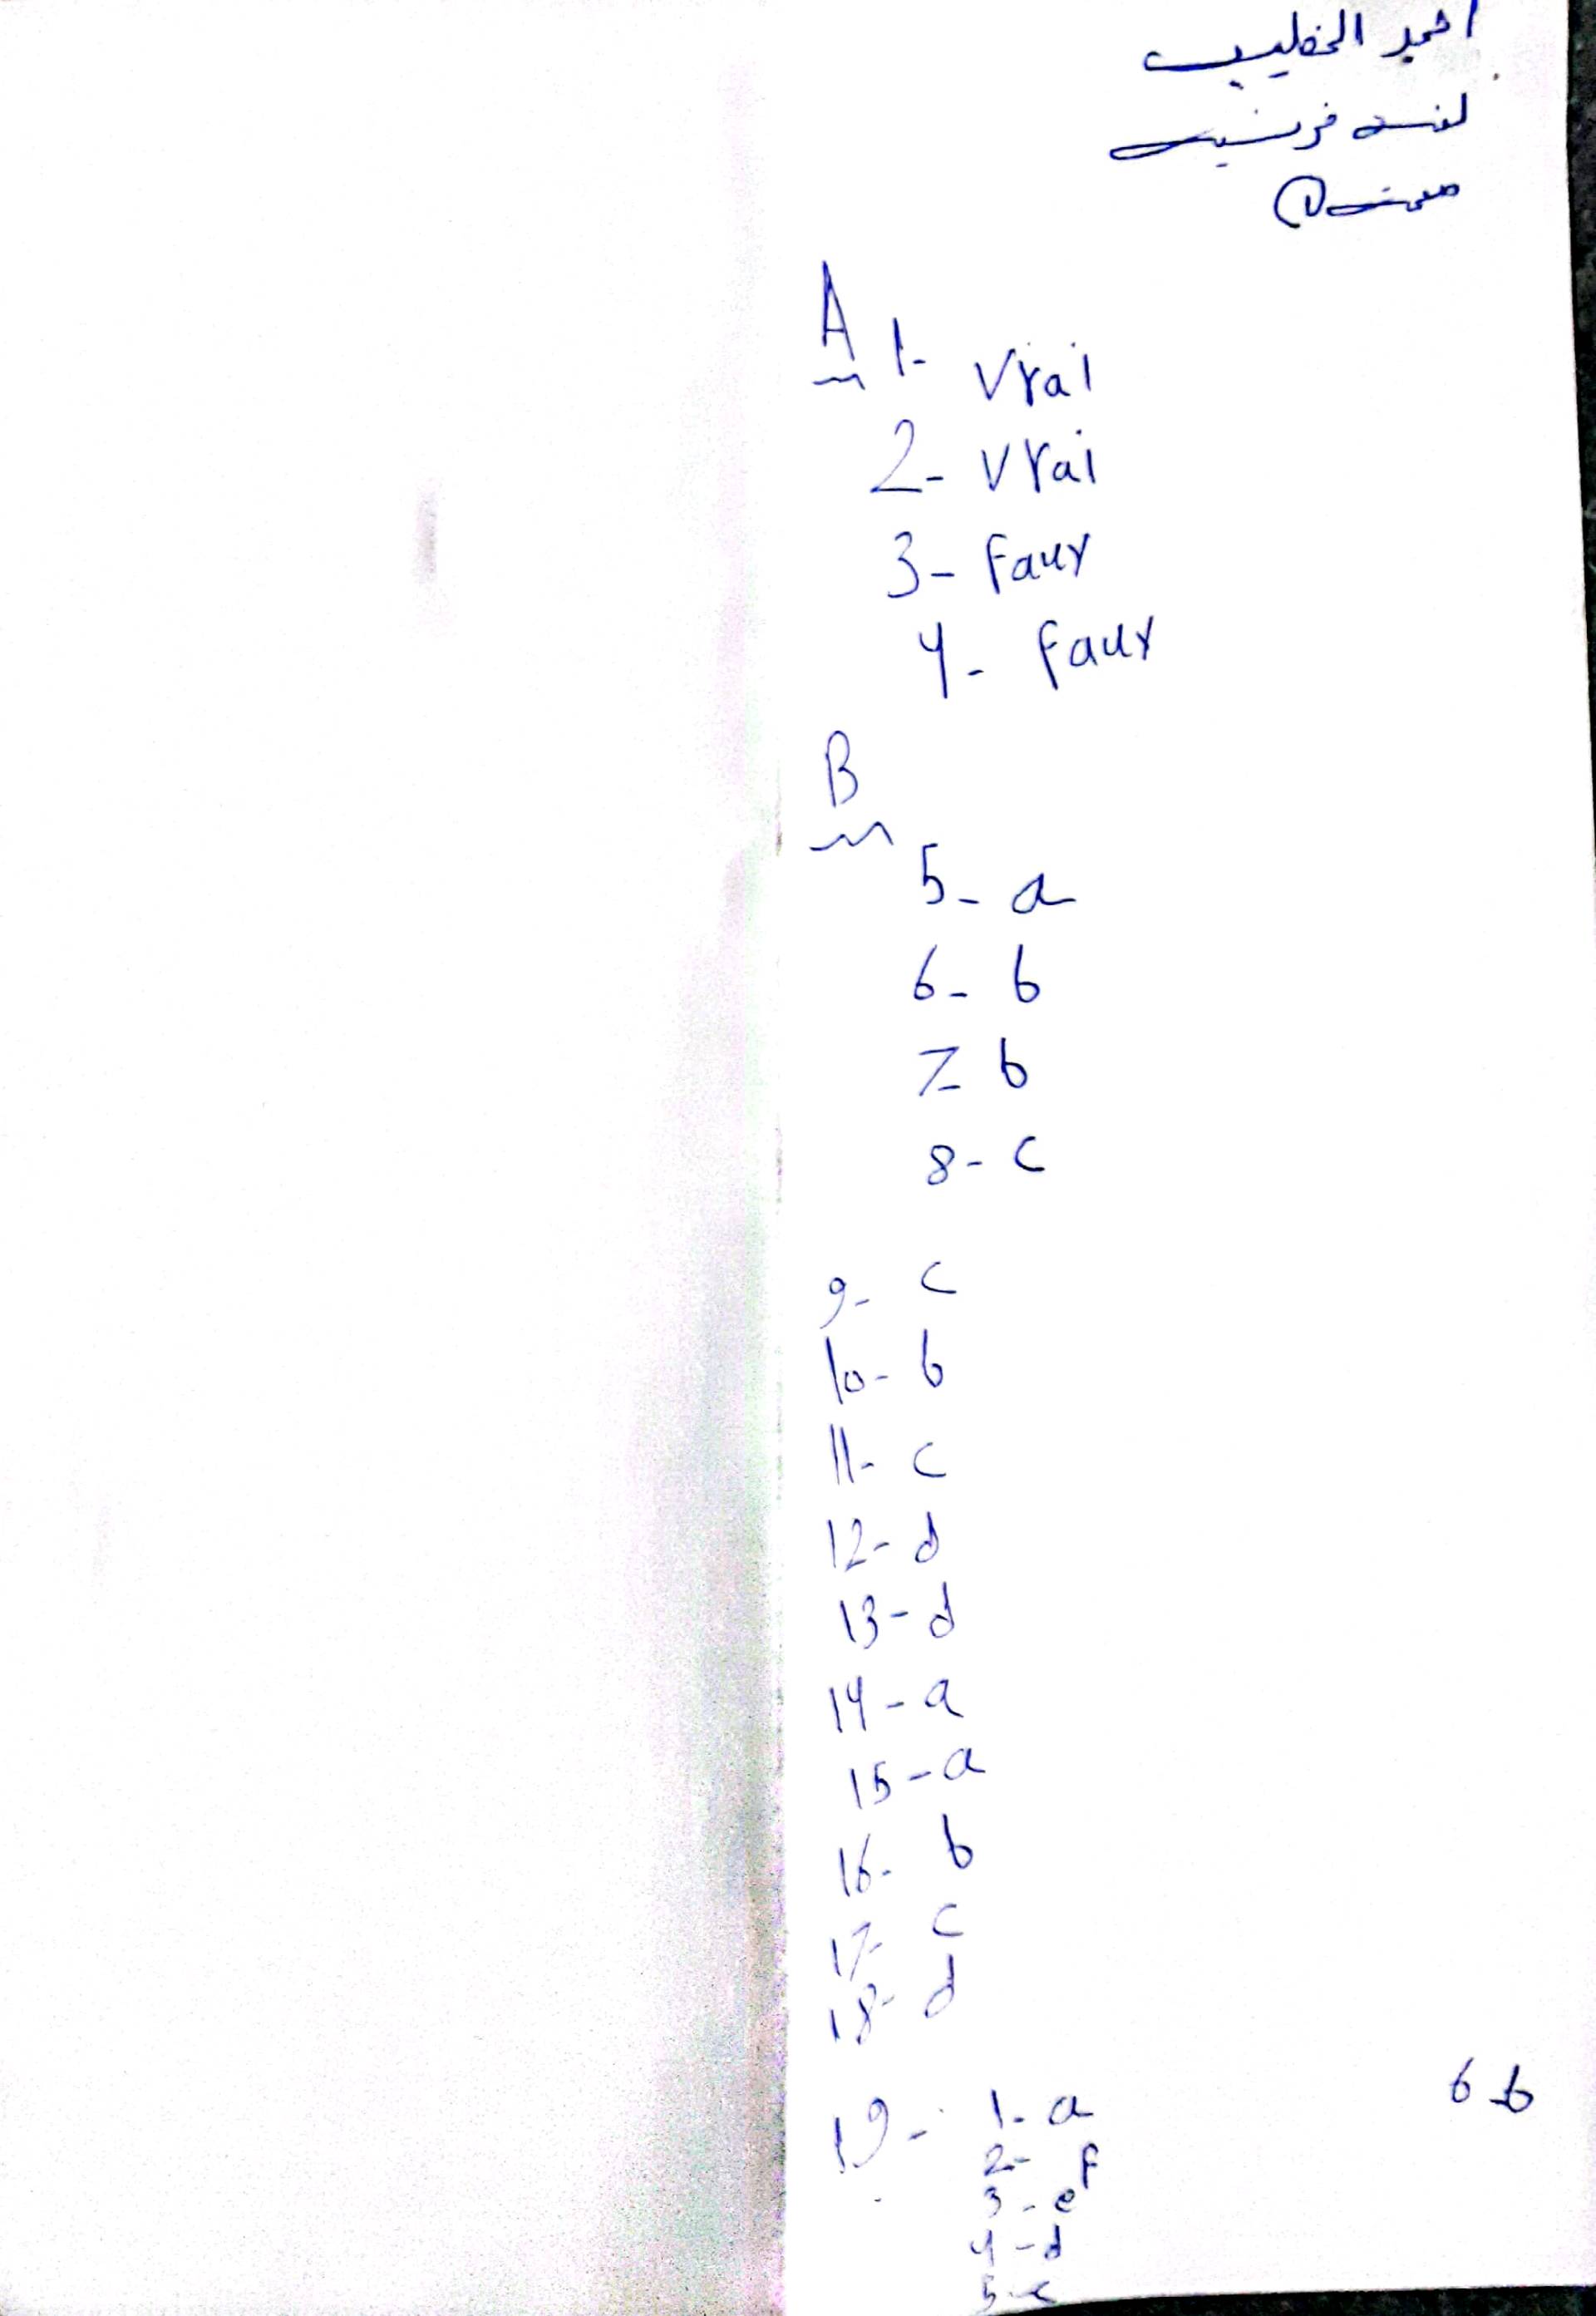 احمد الخطيب
لغة فرنسية
صفحة ①
A 1- Vrai
2- Vrai
3- Faux
4- Faux
B
5- a
6- b
7- b
8- c
9- c
10- b
11- c
12- d
13- d
14- a
15- a
16- b
17- c
18- d
19- 1- a
2- f
3- e
4- d
5- c
6-b